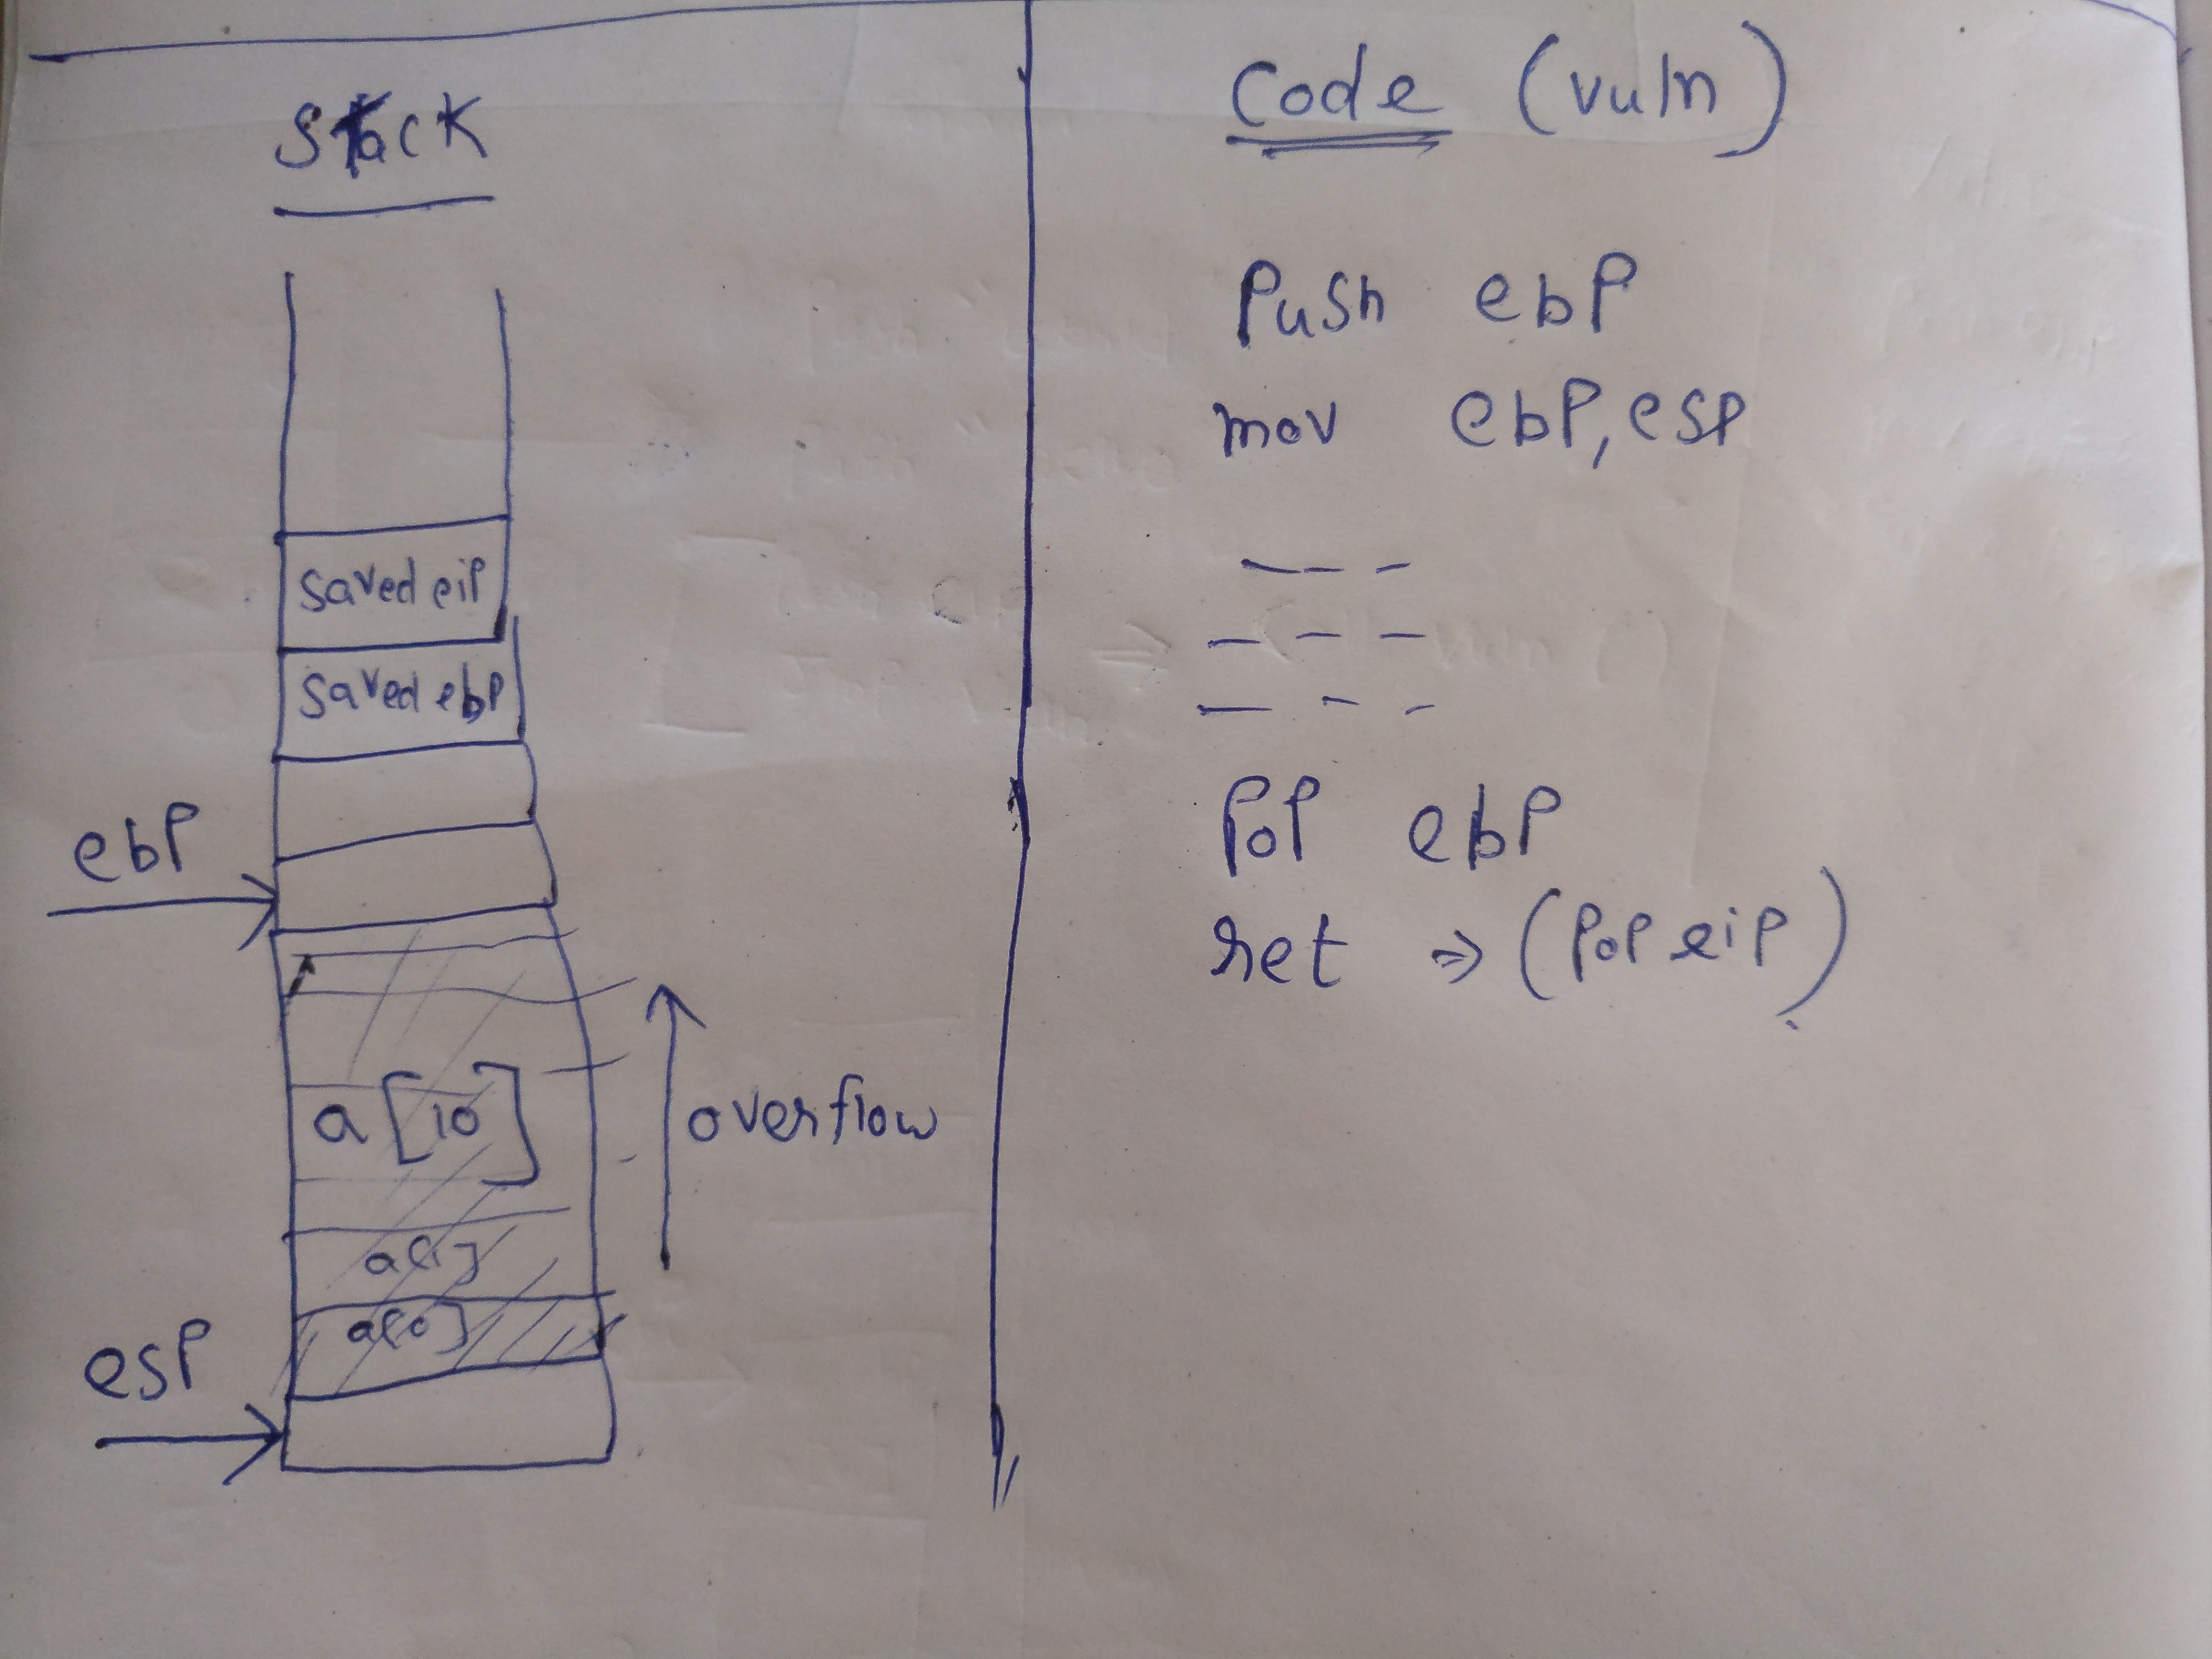 Stack
saved eip
saved ebp
ebp
a[10]
overflow
a[1]
a[0]
esp
Code (vuln)
Push ebp
mov ebp, esp
--- 
---
---
Pop ebp
ret ⇒ (Pop eip)